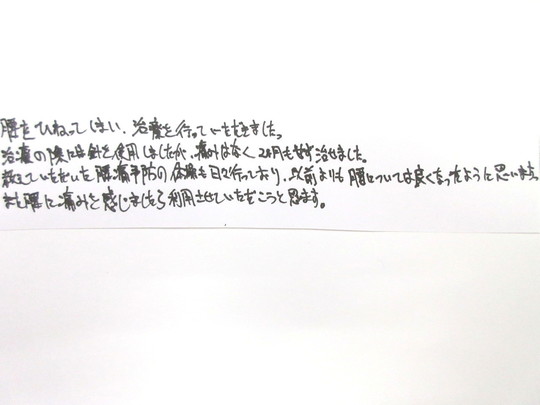 腰をひねってしまい、治療を行っていただきました。
治療の際には針を使用しましたが、痛みはなく2ヶ月もせず治せました。
教えていただいた腰痛予防の体操も日々行っており、以前よりも腰については良くなったように思います。
また腰に痛みを感じましたら利用させていただこうと思います。